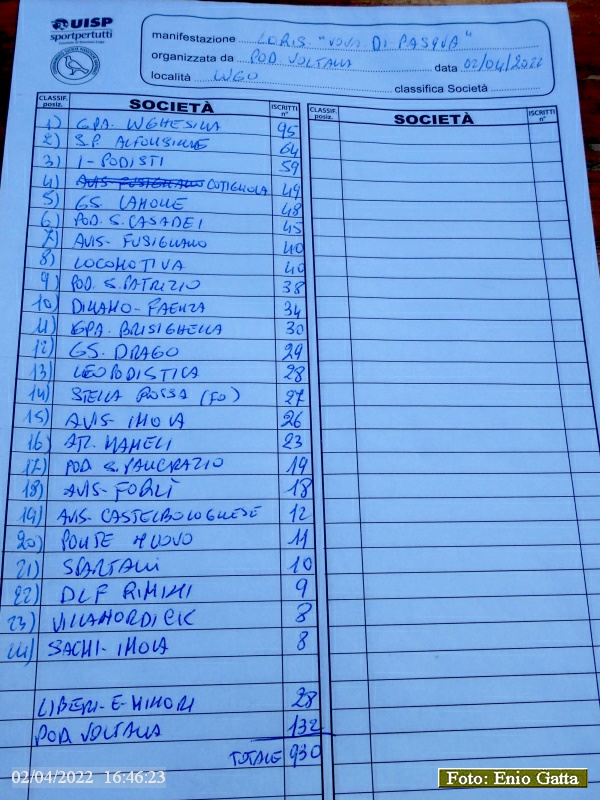 UISP
sportpertutti
manifestazione LORIS. "UOVA DI PASQUA"
organizzata da POD VOLTANA data 02/04/2022
località LUGO classifica Società
CLASSIF. posiz. SOCIETÀ ISCRITTI n° CLASSIF. posiz. SOCIETÀ ISCRITTI n°
1) GPA. LUGHESINA 95
2) S.P. ALFONSINE 64
3) I-PODISTI 59
4) AVIS FUSIGNANO COTIGNOLA 49
5) GS. LAMONE 48
6) POD. S. CASADEI 45
7) AVIS- FUSIGNANO 40
8) LOCOMOTIVA 40
9) POD. S. PATRIZIO 38
10) DINAMO- FAENZA 34
11) GPA. BRISIGHELLA 30
12) GS. DRAGO 29
13) LEOPODISTICA 28
14) STELLA ROSSA (FO) 27
15) AVIS- IMOLA 26
16) ATL. MAMELI 23
17) POD S. PANCRAZIO 19
18) AVIS- FORLÌ 18
19) AVIS- CASTELBOLOGNESE 12
20) PONTE NUOVO 11
21) SPARTANI 10
22) DLF RIMINI 9
23) VILLANORDICK 8
24) SACMI- IMOLA 8
LIBERI- E- MINORI 28
POD VOLTANA 132
TOTALE 930
02/04/2022 16:46:23
Foto: Enio Gatta